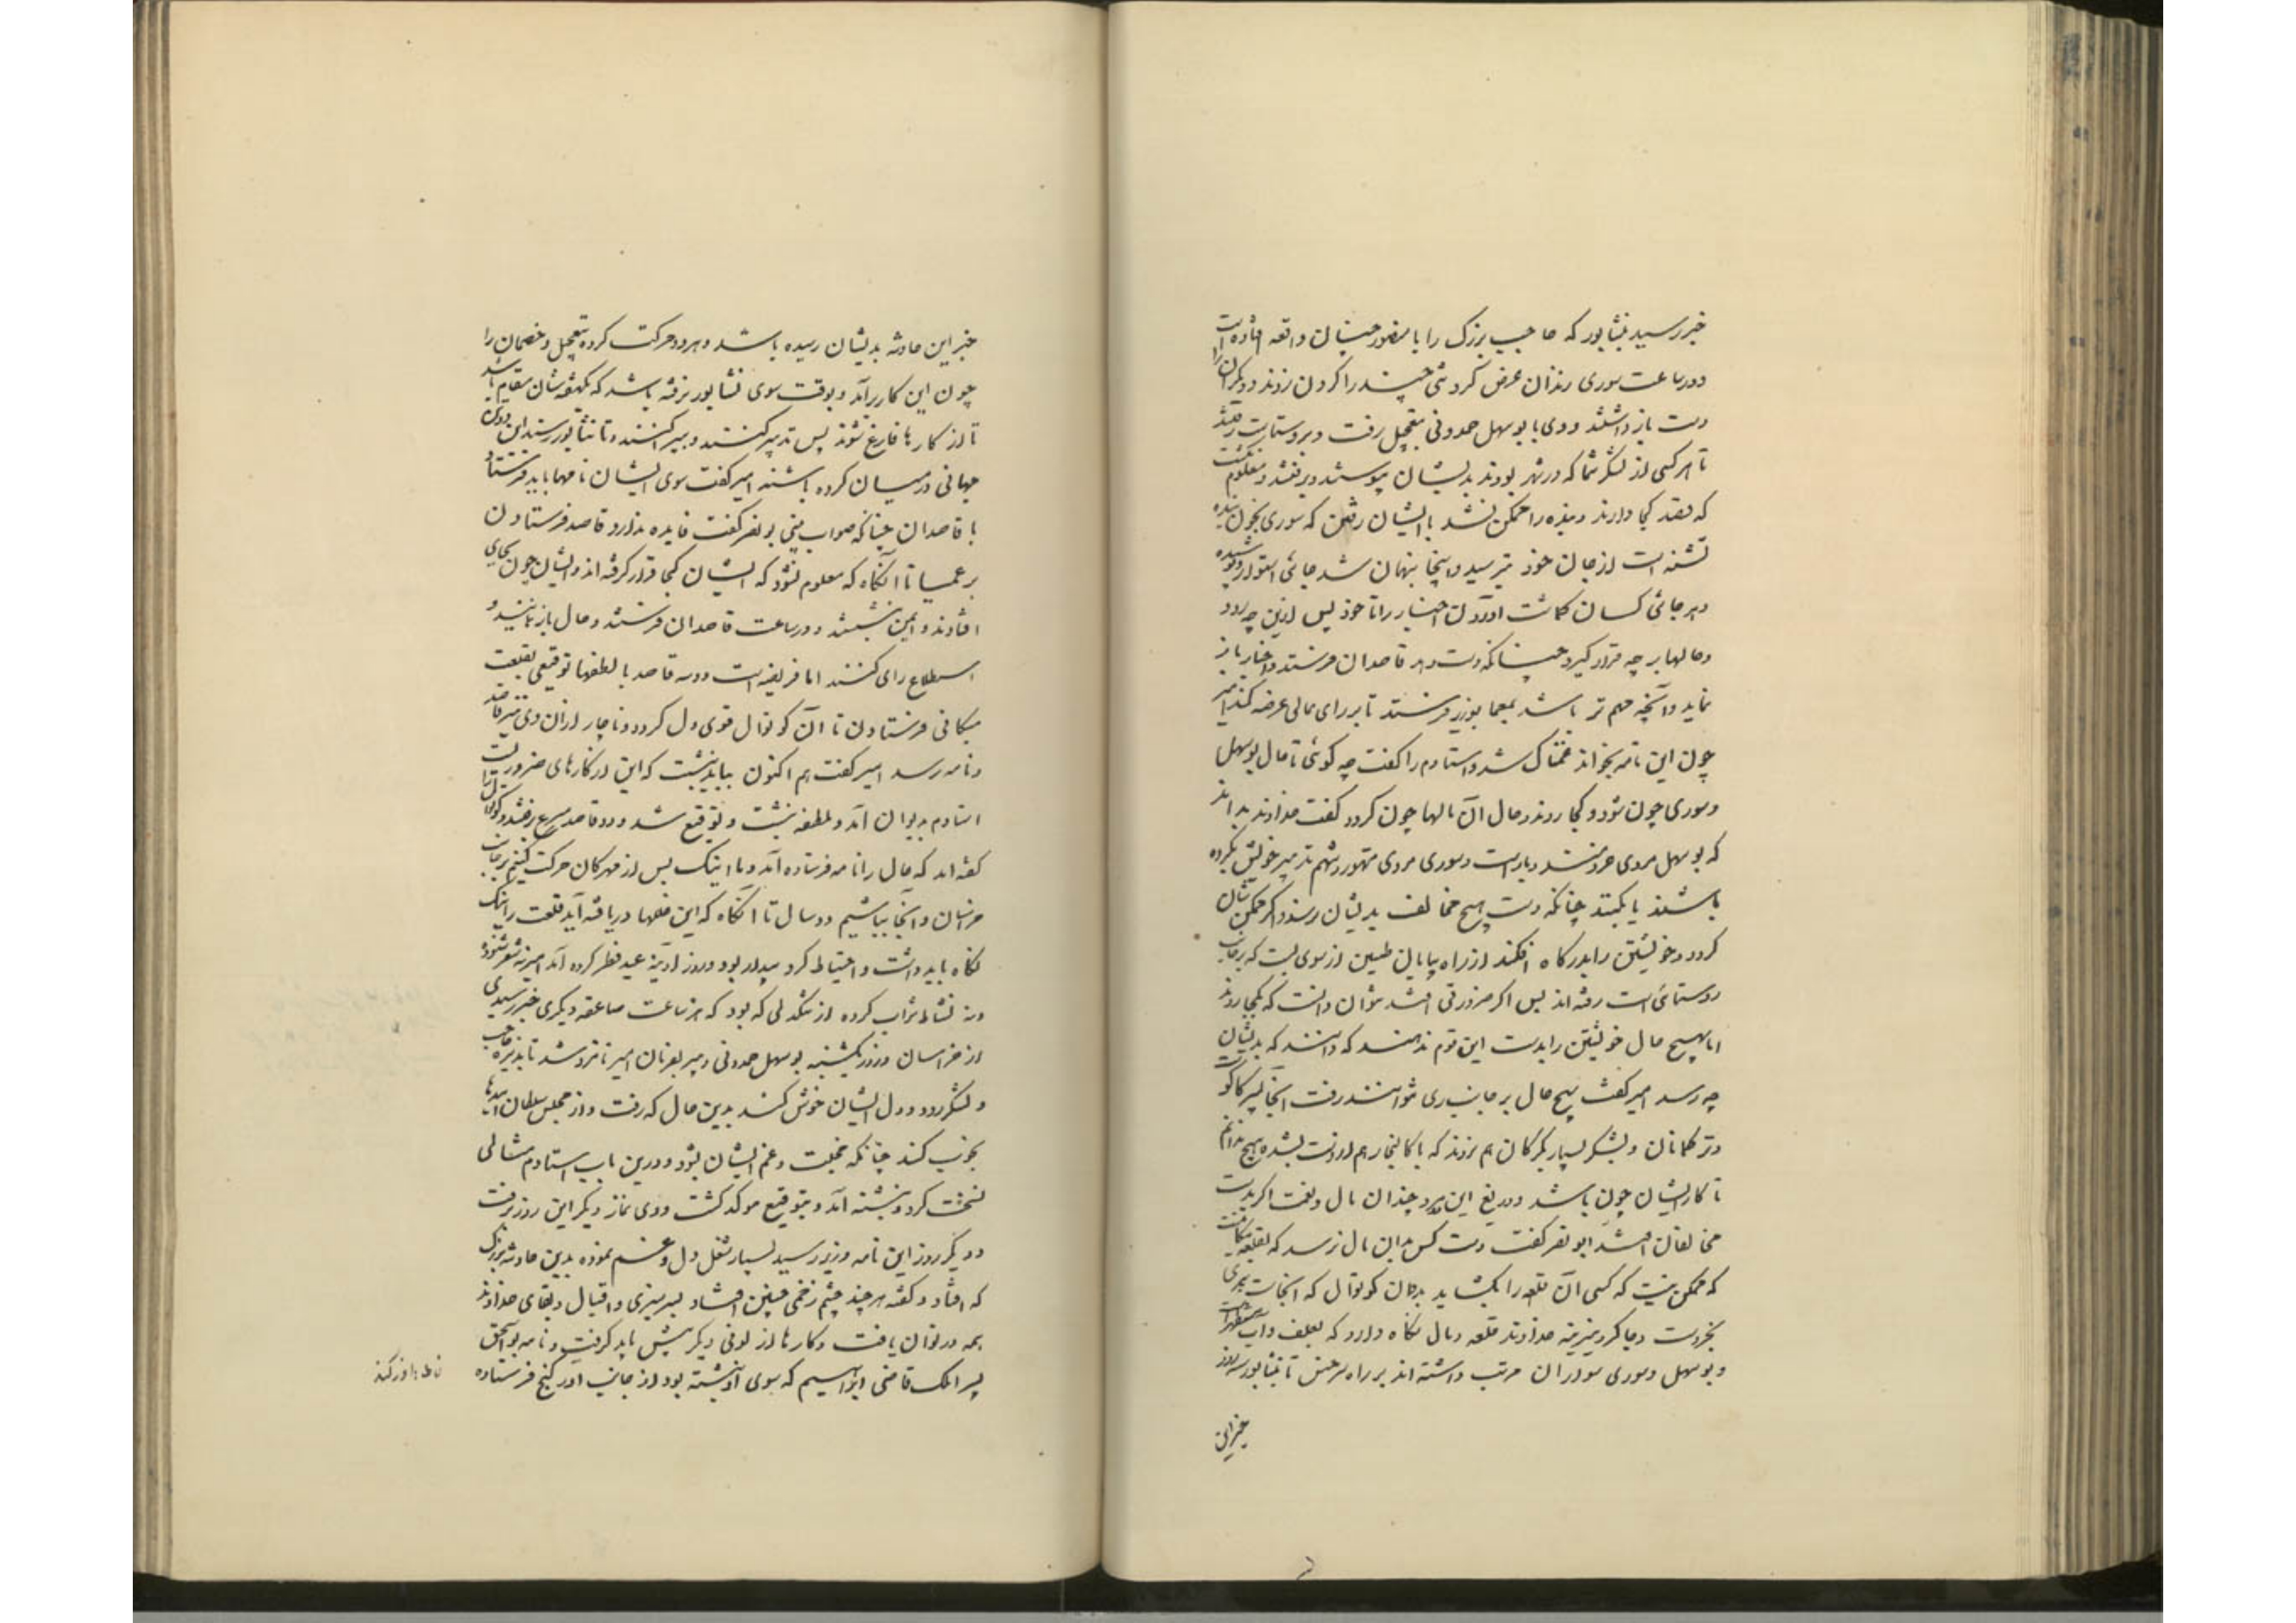 خبر رسید بنشابور که حاجب بزرک را با مضور چنان واقعه افتاده است
و در ساعت سوری زندان عرض کرد تنی چند را کردن زدند و دیکران را
دست باز داشتند و وی با بوسهل حمدونی بتعجیل رفت و بروستا بست رفتند
تا هر کسی از لشکر شما که در شهر بودند بدیشان پیوستند و برفتند و معلوم نکشت
که قصد کجا دارند و بنده را ممکن نشد با ایشان رفتن که سوری بخون بنده
تشنه است از جان خود بترسید و اینجا پنهان شد جائی استوار و پوشیده
و هر جائی کسان کماشت آوردن اخبار را تا خود پس ازین چه رود
و حالها بر چه قرار کیرد چنانکه دست دهد قاصدان فرستد و اخبار باز
نماید و آنچه مهم تر باشد بمعما بوزیر فرستد تا بر رای عالی عرضه کند امیر
چون این نامه بخواند غمناک شد و استادم را کفت چه کوئی تا حال بوسهل
و سوری چون شود و کجا روند و حال آن مالها چون کردد کفت خداوند بداند
که بوسهل مردی خردمند و باراست و سوری مردی متهور و شهم تدبیر خویش بکرده
باشند یا بکنند چنانکه دست هیچ مخالف بدیشان نرسد و اکر ممکن شان
کردد و خویشتن را بدرکاه افکنند از راه بیابان طبسین از سوی بست که بر جانب
روستای بست رفته اند پس اکر ضرورتی افتد نتوان دانست که بکجا روند
اما بهیچ حال خویشتن را بدست این قوم ندهند که دانند که بدیشان
چه رسد امیر کفت بهیچ حال بر جانب ری نتوانند رفت آنجا پسر کاکو است
و ترکمانان و لشکر بسیار بکرکان هم نروند که باکالیجار هم از دست بشده هیچ ندانم
تا کار ایشان چون باشد و دریغ این دو مرد و چندان مال و نعمت اکر بدست
مخالفان افتد ابو نصر کفت دست کس بدان مال نرسد که بقلعه میکالیست
که ممکن نیست که کسی آن قلعه را بکشاید بدان کوتوال که آنجاست پیری
بخردست و چاکر دیرینه خداوند قلعه و مال نکاه دارد که بعلف و آب مستظهر است
و بوسهل و سوری سواران مرتب داشته اند بر راه سرخس تا نشابور سه روز
خبر این
خبر این حادثه بدیشان رسیده باشد و هر دو حرکت کرده بتعجیل و خصمان را
چون این کار برآمد و بوقت سوی نشابور نرفته باشد که یکهفته شان مقام باشد
تا از کارها فارغ شوند پس تدبیر کنند و بپراکنند و تا نشابور رسند این دو تن
جهانی در میان کرده باشند امیر کفت سوی ایشان نامها باید فرستاد
با قاصدان چنانکه صواب بینی بونصر کفت فایده ندارد قاصد فرستادن
بر عمیا تا آنکاه که معلوم شود که ایشان کجا قرار کرفته اند و ایشان چون بجای
افتادند و ایمن بنشستند در ساعت قاصدان فرستند و حال باز نمایند و
استطلاع رای کنند اما فریضه است دو سه قاصد با لطفها توقیعی بقلعت
میکالی فرستادن تا آن کوتوال قوی دل کردد و ناچار از آن وی نیز قاصد
و نامه رسد امیر کفت هم اکنون بباید نبشت که این از کارهای ضرورت است
استادم بدیوان آمد و ملطفه نبشت و توقیع شد و دو قاصد مسرع برفتند و کوتوال را
کفته آمد که حال را نامه فرستاده آید و ما اینک پس از مهرکان حرکت کنیم بر جانب
خراسان و آنجا بباشیم دو سال تا آنکاه که این خللها دریافته آید قلعت را نیک
نکاه باید داشت و احتیاط کرد و بیدار بود و روز آدینه عید فطر کرده آمد امیر نه شعر شنود
و نه نشاط شراب کرده از تنکدلی که بود که هر ساعت صاعقه دیکری خبر رسیدی
از خراسان و روز یکشنبه بوسهل حمدونی و بیر بفرمان امیر نامزد شد تا پذیره حاجب
و لشکر رود و دل ایشان خوش کند بدین حال که رفت و از مجلس سلطان امیدها
بخوب کند چنانکه خجلت و غم ایشان بشود و درین باب استادم مثالی
نسخت کرد و نبشته آمد و بتوقیع موکد کشت و وی نماز دیکر این روز برفت
و دیکر روز این نامه وزیر رسید بسیار شغل دل و غم نموده بدین حادثه بزرک
که افتاد و کفته هر چند چشم زخمی چنین افتاد بسر سبزی و اقبال و بقای خداوند
همه در توان یافت و کارها از لونی دیکر پیش باید کرفت و نامه بواسحق
پسر ایلک قاضی ابراهیم که سوی او نبشته بود از جانب اورکنج فرستاده